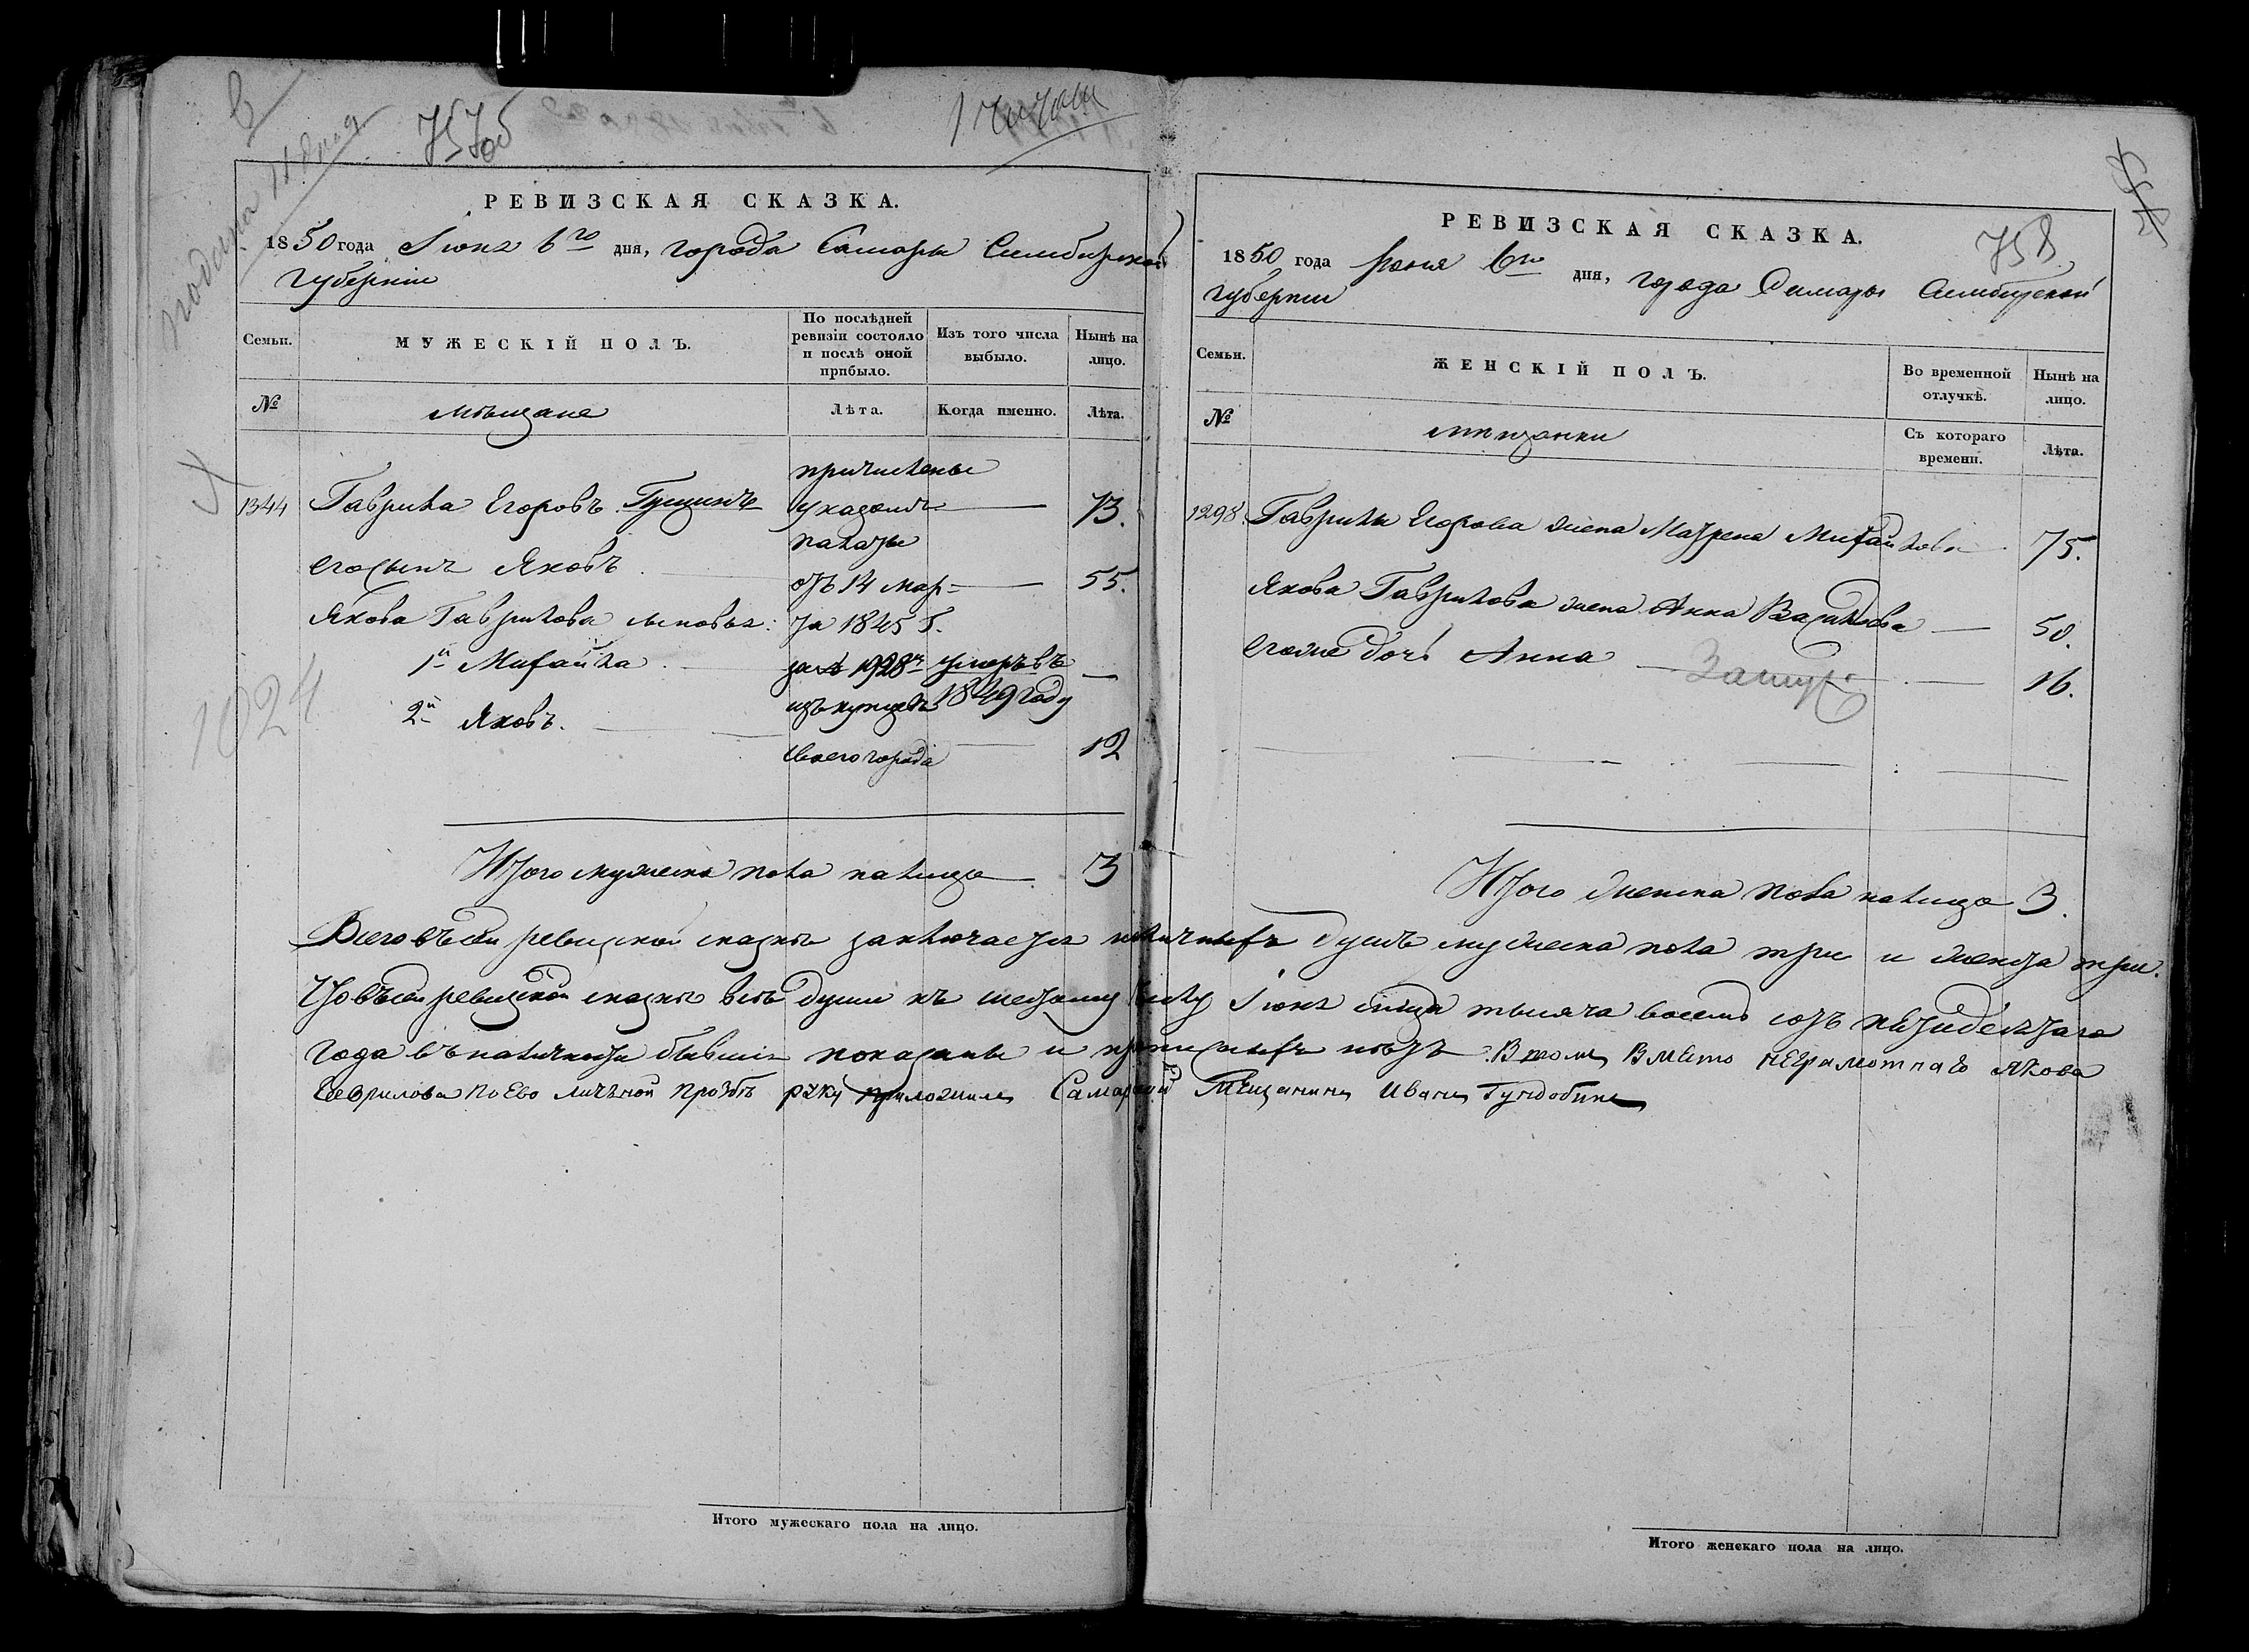 757об
РЕВИЗСКАЯ СКАЗКА.
1850 года Іюня 6го дня, города Самары Симбирской
губерніи
Семьи.
МУЖЕСКІЙ ПОЛЪ.
По послѣдней
ревизіи состояло
и послѣ оной
прибыло.
Изъ того числа
выбыло.
Нынѣ на
лицо.
№
мѣщане
Лѣта.
Когда именно.
Лѣта.
причислены
1344 Гаврила Егоровъ Гущинъ указомъ 73.
палаты
его сынъ Яковъ отъ 14 мар= 55.
Якова Гаврилова сыновья: та 1845 г.
1й Михайла за № 1928м умеръ въ
изъ купцовъ 1849 году
2й Яковъ.
своего города 12
Итого мужеска пола налицо 3
1024
758
РЕВИЗСКАЯ СКАЗКА.
1850 года Іюня 6го дня, города Самары Симбирской
губерніи
Семьи.
ЖЕНСКІЙ ПОЛЪ.
Во временной
отлучкѣ.
Нынѣ на
лицо.
№
мещанки
Съ котораго
времени.
Лѣта.
1298. Гаврилы Егорова жена Матрена Михайлова 75.
Якова Гаврилова жена Анна 50.
его же дочь Анна 16.
Замуж.
Итого женска пола налицо 3.
Всего въ сей ревизской сказкѣ заключается наличныхъ душъ мужеска пола три и женска три.
Что въ сей ревизской сказкѣ всѣ души къ шестому числу Іюня мѣсяца тысяча восемь сотъ пятидесятаго
года въ наличности бывшія показаны и прописныхъ нѣтъ. В томъ вместо неграмотнаго Якова
Гаврилова по ево личьной прозбѣ руку приложилъ Самарский Мещанинъ Иванъ Гундобинъ
Итого мужескаго пола на лицо.
Итого женскаго пола на лицо.